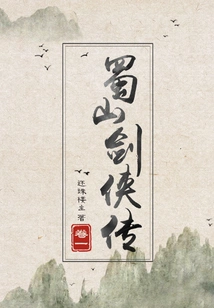 蜀山剑侠传
还珠楼主 著
卷一